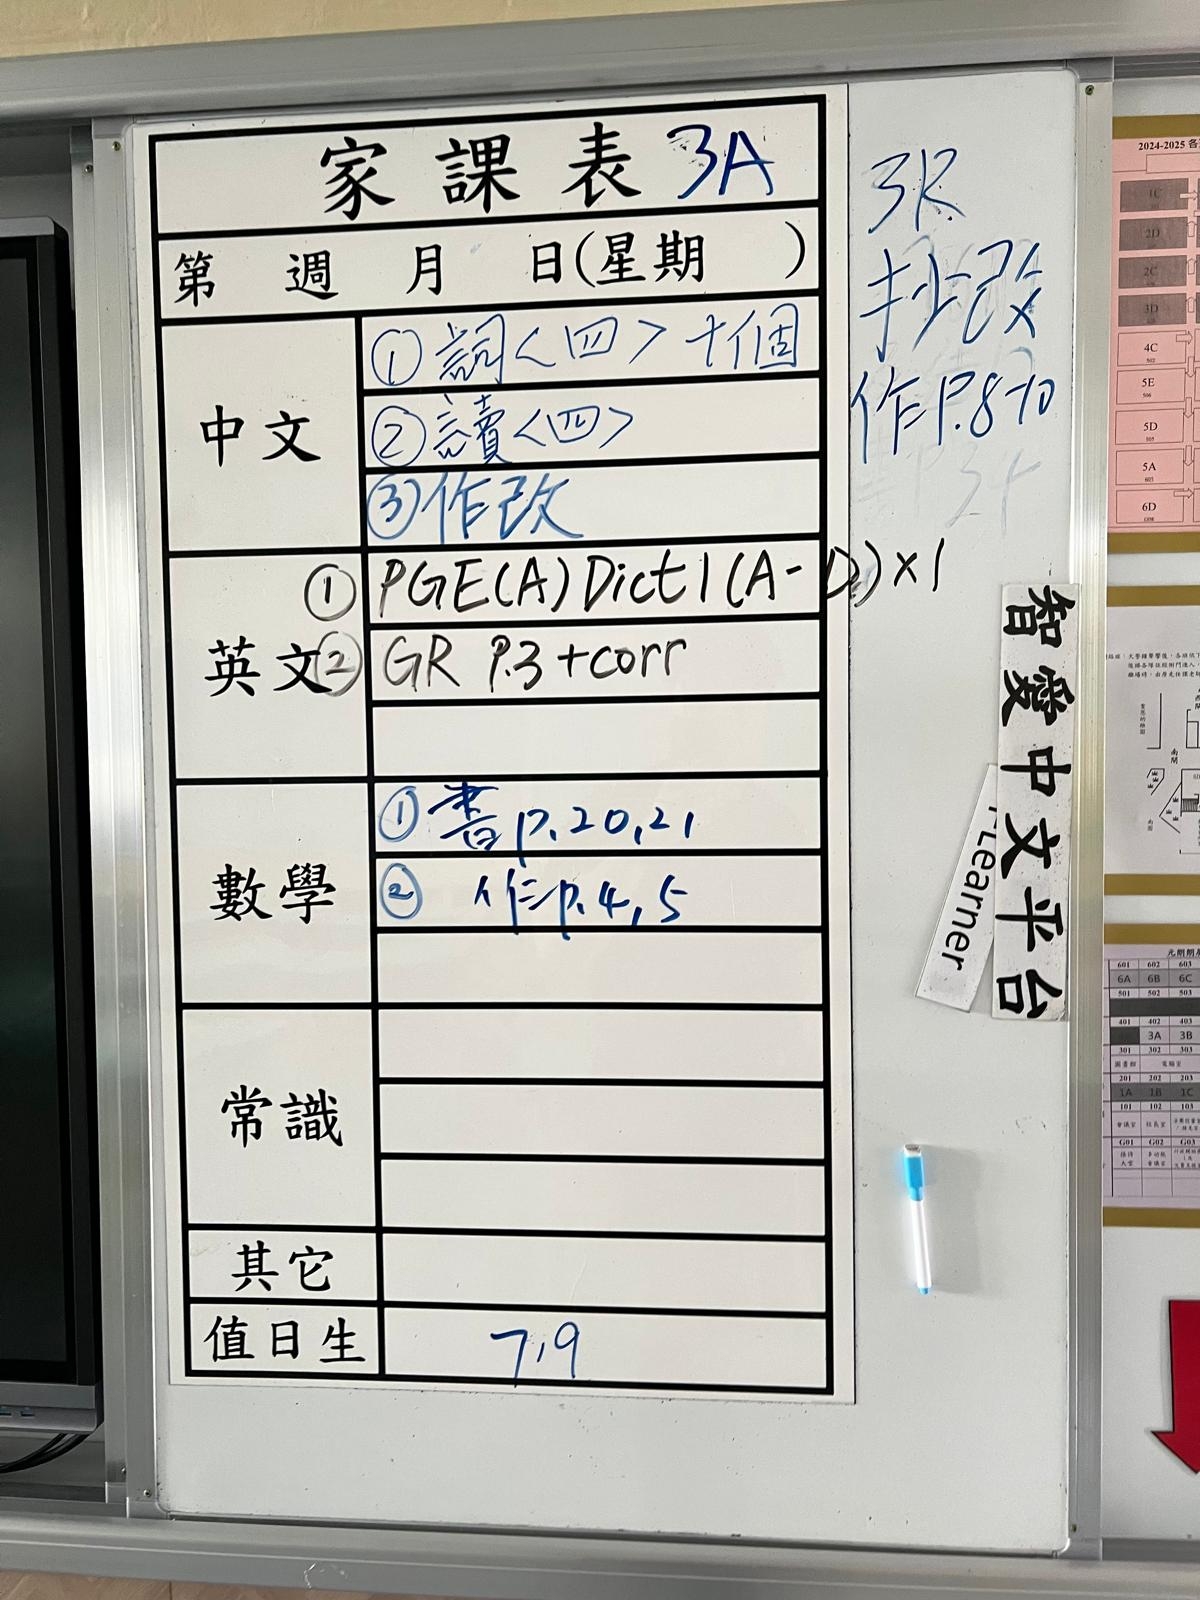 家課表 3A
第 週 月 日(星期 )
中文
① 詞<四> 十個
② 讀<四>
③ 作改
英文
① PGE(A) Dict 1 (A-D) x1
② GR P.3 + corr
數學
① 書 p.20,21
② 作 p.4,5
常識
其它
值日生
7,9
3R
抄改
作 P.8-10
智愛中文平台
Learner
2024-2025
1C
2D
2C
3D
4C
5E
5D
5A
6D
601 602 603
6A 6B 6C
501 502 503
401 402 403
3A 3B
301 302 303
圖書館 電腦室
201 202 203
1A 1B 1C
101 102 103
會議室 校長室
G01 G02 G03